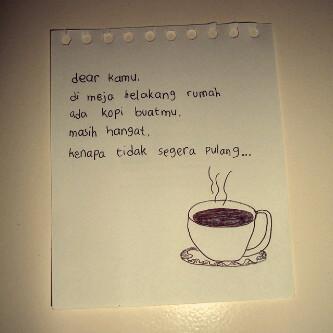 dear kamu.
di meja belakang rumah
ada kopi buatmu.
masih hangat.
kenapa tidak segera pulang...